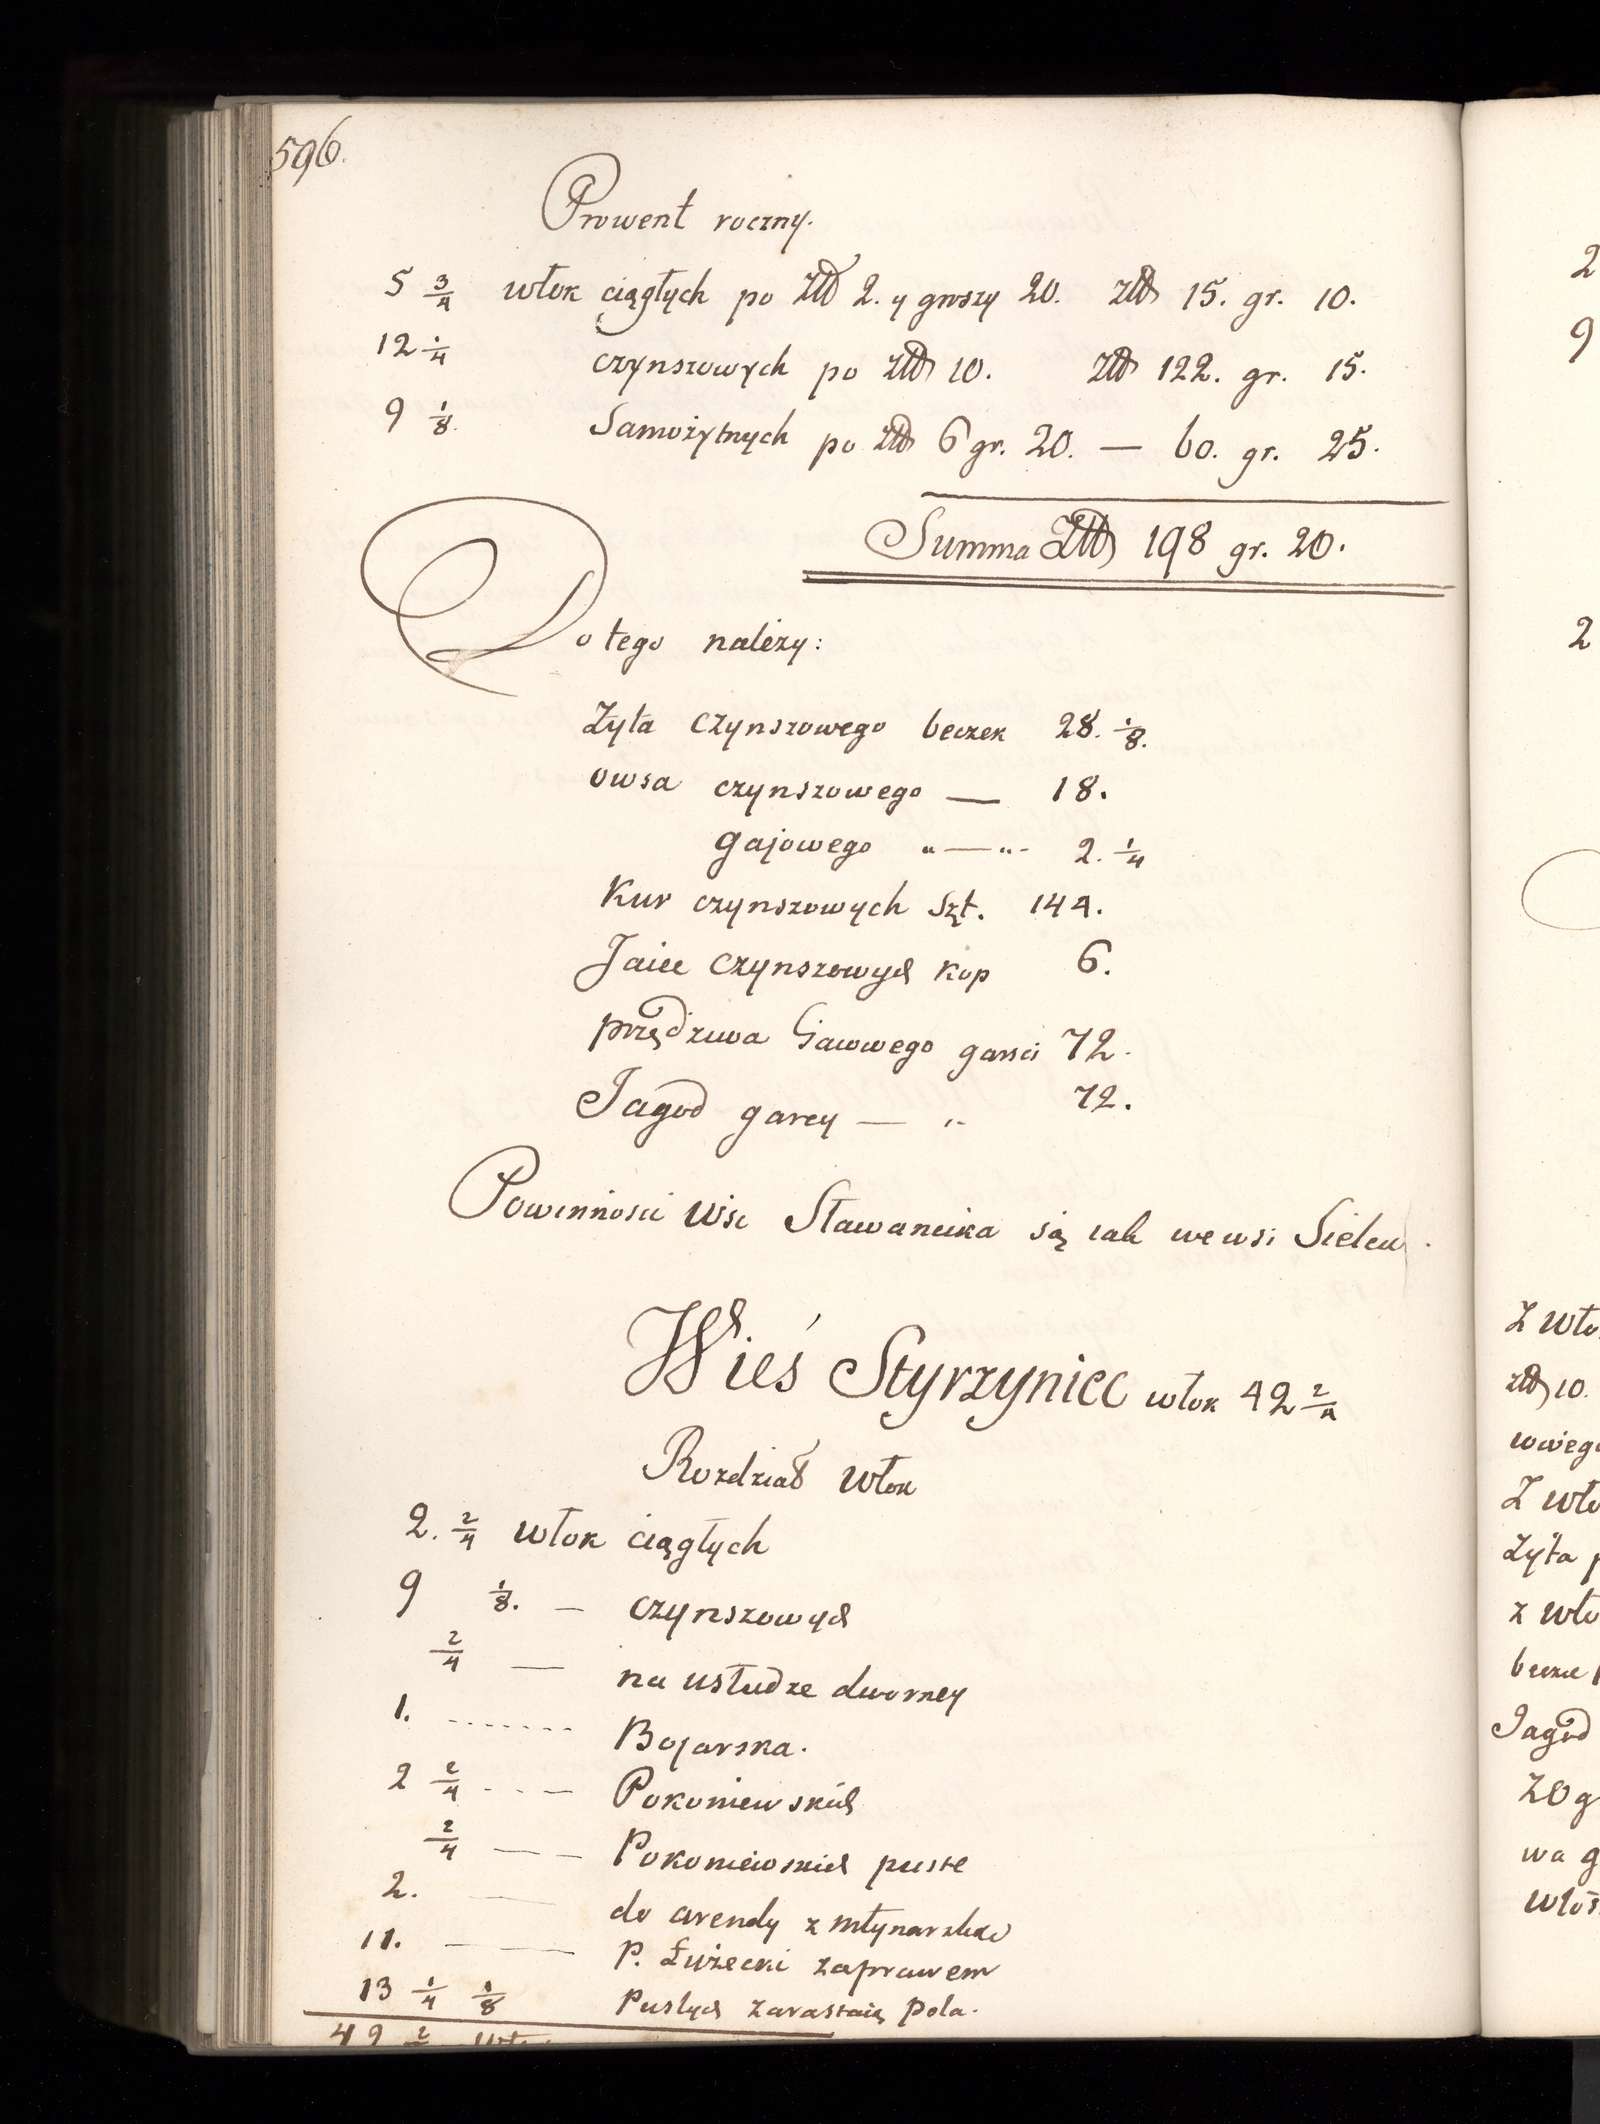 596.
Prowent roczny.
5 3/4 włok ciągłych po Złł 2. y groszy 20. złł 15. gr. 10.
12 1/4 czynszowych po złł 10. złł 122. gr. 15.
9 1/8. Samożytnych po złł 6 gr. 20. — 60. gr. 25.
Summa Złł 198 gr. 20.
Do tego należy:
Żyta czynszowego beczek 28. 1/8.
owsa czynszowego — 18.
gajowego „—„- 2. 1/4
Kur czynszowych Szt. 144.
Jaiec czynszowych kop 6.
przędziwa Gaiowego garsci 72.
Jagod garcy — „ 72.
Powinnosci Wsi Sławancika są iak we wsi Sielcu.
Wieś Styrzyniec włok 42 2/4
Rozdział Włok
2. 2/4 włok ciągłych
9 1/8. — czynszowych
2/4 — na usłudze dworney
1. ....... Bojarska.
2 2/4 ... — Pokoniewskich
2/4 — — Pokoniewskich puste
2. — do arendy z młynarzka
11. — — P. Łużecki zaprawem
13 1/4 1/8 Pustych zarastaią Pola.
42 2/4
2
9
2
Z wło
złł 10.
Z wło
żyta p
z wło
Jagod
wa g